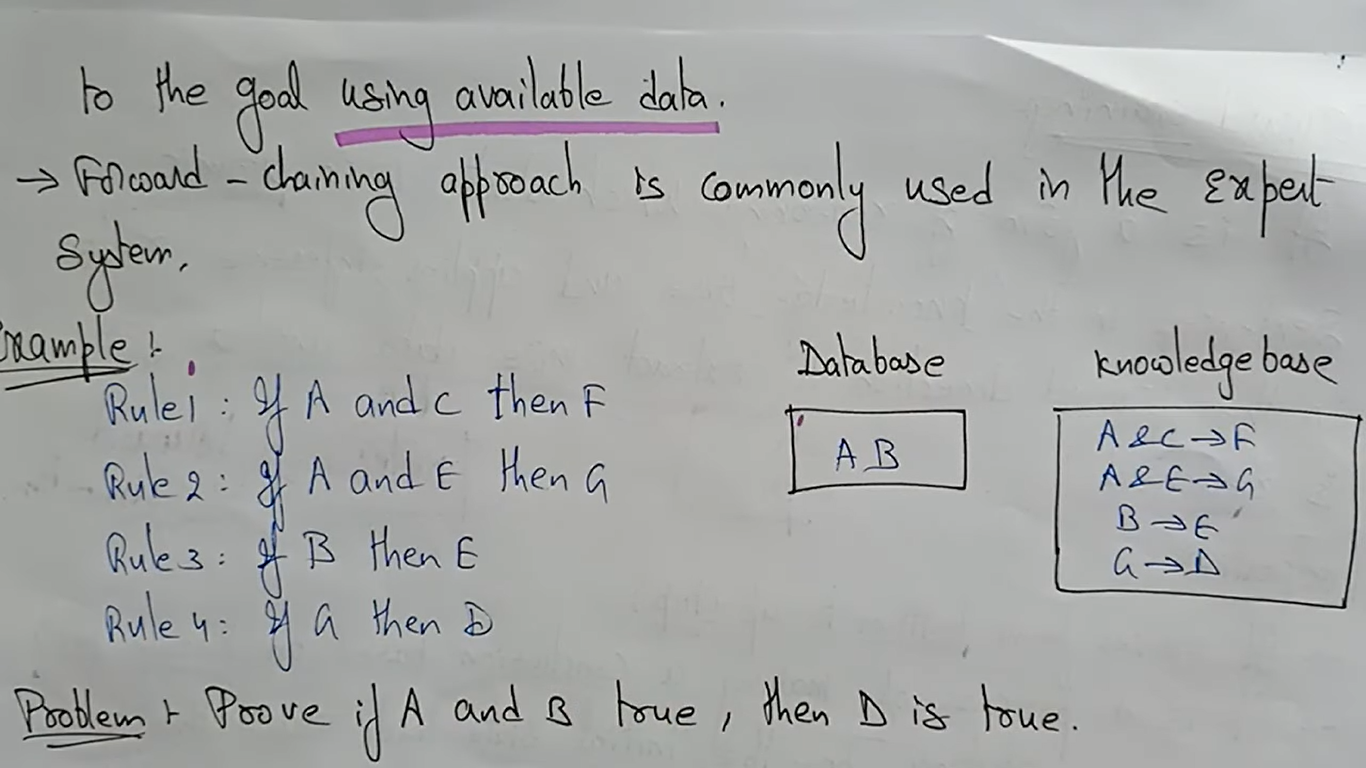 to the goal using available data.
→ Forward - chaining approach is commonly used in the expert
System.
Example :
Rule1 : If A and C then F
Rule 2 : If A and E then G
Rule 3 : If B then E
Rule 4 : If G then D
Database
A B
knowledge base
A & C → F
A & E → G
B → E
G → D
Problem : Prove if A and B true, then D is true.